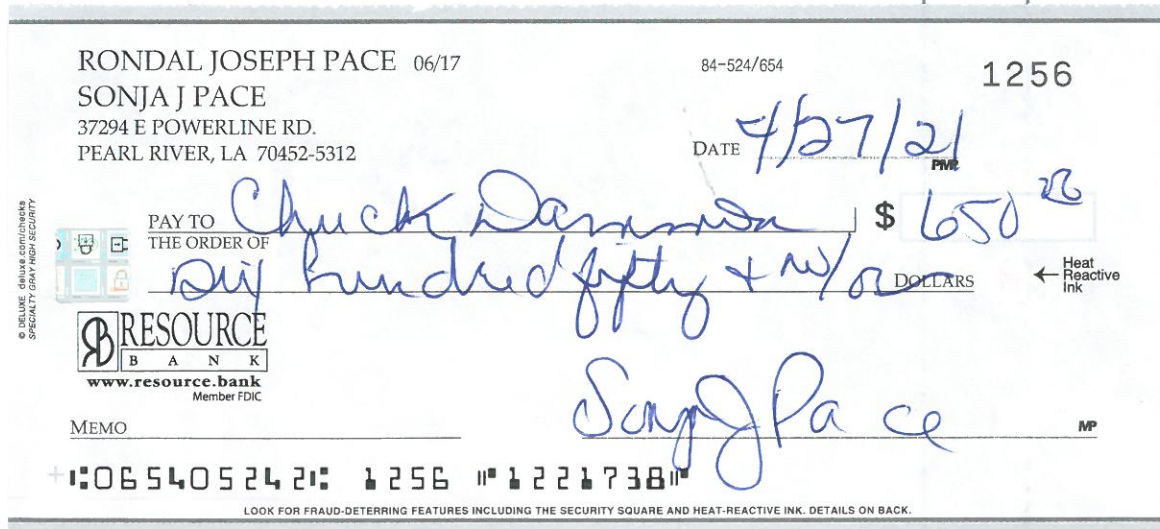 RONDAL JOSEPH PACE 06/17
84-524/654
1256
SONJA J PACE
37294 E POWERLINE RD.
PEARL RIVER, LA 70452-5312
DATE 4/27/21
PAY TO THE ORDER OF Chuck
$ 650
Six hundred fifty + no/00 DOLLARS
Heat Reactive Ink
© DELUXE deluxe.com/checks
SPECIALTY GRAY HIGH SECURITY
RB RESOURCE
BANK
www.resource.bank
Member FDIC
Sonja J Pace
MEMO
MP
⑆065405242⑆ 1256 ⑈1221738⑈
LOOK FOR FRAUD-DETERRING FEATURES INCLUDING THE SECURITY SQUARE AND HEAT-REACTIVE INK. DETAILS ON BACK.